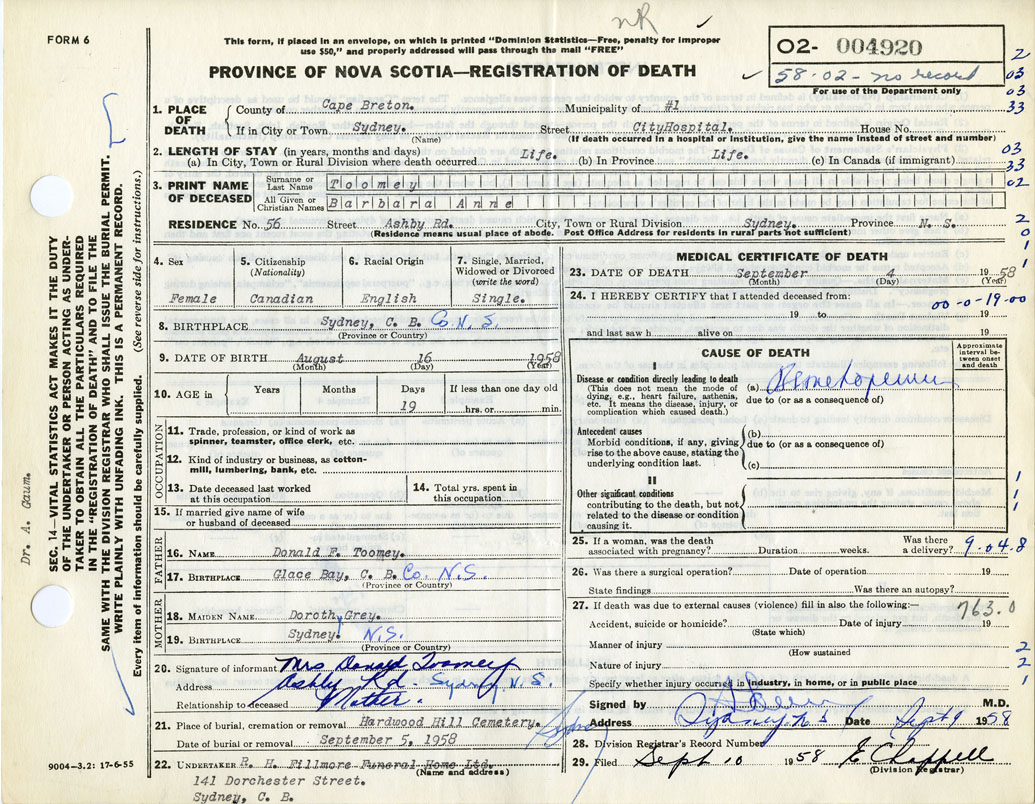 nR ✓
FORM 6
This form, if placed in an envelope, on which is printed "Dominion Statistics—Free, penalty for improper
use $50," and properly addressed will pass through the mail "FREE"
PROVINCE OF NOVA SCOTIA—REGISTRATION OF DEATH
O2- 004920
✓ 58-02-no record
For use of the Department only
1. PLACE OF DEATH
County of Cape Breton. Municipality of #1
If in City or Town Sydney. Street CityHospital. House No.
(Name) (If death occurred in a hospital or institution, give the name instead of street and number)
2. LENGTH OF STAY (in years, months and days)
(a) In City, Town or Rural Division where death occurred Life. (b) In Province Life. (c) In Canada (if immigrant)
3. PRINT NAME OF DECEASED
Surname or Last Name Toomey
All Given or Christian Names Barbara Anne
RESIDENCE No. 56 Street Ashby Rd. City, Town or Rural Division Sydney. Province N. S.
(Residence means usual place of abode. Post Office Address for residents in rural parts not sufficient)
4. Sex
Female
5. Citizenship
(Nationality)
Canadian
6. Racial Origin
English
7. Single, Married,
Widowed or Divorced
(write the word)
Single.
8. BIRTHPLACE Sydney, C. B. Co N.S.
(Province or Country)
9. DATE OF BIRTH August 16 1958
(Month) (Day) (Year)
10. AGE in
Years
Months
Days
19
If less than one day old
hrs. or min.
OCCUPATION
11. Trade, profession, or kind of work as
spinner, teamster, office clerk, etc.
12. Kind of industry or business, as cotton-
mill, lumbering, bank, etc.
13. Date deceased last worked
at this occupation
14. Total yrs. spent in
this occupation
15. If married give name of wife
or husband of deceased
FATHER
16. NAME Donald F. Toomey.
17. BIRTHPLACE Glace Bay, C. B. Co. N.S.
(Province or Country)
MOTHER
18. MAIDEN NAME Dorothy Grey.
19. BIRTHPLACE Sydney. N.S.
(Province or Country)
20. Signature of informant Mrs Donald Toomey
Address Ashby Rd. Sydney N.S.
Relationship to deceased Mother.
21. Place of burial, cremation or removal Hardwood Hill Cemetery. Sydney
Date of burial or removal September 5, 1958
22. UNDERTAKER R. H. Fillmore Funeral Home Ltd.
(Name and address)
141 Dorchester Street.
Sydney, C. B.
9004—3.2: 17-6-55
MEDICAL CERTIFICATE OF DEATH
23. DATE OF DEATH September 4 1958
(Month) (Day) (Year)
24. I HEREBY CERTIFY that I attended deceased from:
00-0-19-00
19 to 19
and last saw h alive on 19
CAUSE OF DEATH
Approximate
interval be-
tween onset
and death
I
Disease or condition directly leading to death
(This does not mean the mode of
dying, e.g., heart failure, asthenia,
etc. It means the disease, injury, or
complication which caused death.)
(a)
due to (or as a consequence of)
Antecedent causes
Morbid conditions, if any, giving
rise to the above cause, stating the
underlying condition last.
(b)
due to (or as a consequence of)
(c)
II
Other significant conditions
contributing to the death, but not
related to the disease or condition
causing it.
25. If a woman, was the death
associated with pregnancy? Duration weeks.
Was there
a delivery? 9.04.8
26. Was there a surgical operation? Date of operation 19
State findings Was there an autopsy?
27. If death was due to external causes (violence) fill in also the following:—
763.0
Accident, suicide or homicide? Date of injury 19
(State which)
Manner of injury
(How sustained
Nature of injury
Specify whether injury occurred in industry, in home, or in public place
Signed by M.D.
Address Sydney N S Date Sept 9 1958
28. Division Registrar's Record Number
29. Filed Sept 10 1958 E Chappell
(Division Registrar)
2
03
03
33
03
33
02
2
0
1
1
1
1
2
2
1
SEC. 14—VITAL STATISTICS ACT MAKES IT THE DUTY
OF THE UNDERTAKER OR PERSON ACTING AS UNDER-
TAKER TO OBTAIN ALL THE PARTICULARS REQUIRED
IN THE "REGISTRATION OF DEATH" AND TO FILE THE
SAME WITH THE DIVISION REGISTRAR WHO SHALL ISSUE THE BURIAL PERMIT.
WRITE PLAINLY WITH UNFADING INK. THIS IS A PERMANENT RECORD.
Every item of information should be carefully supplied. (See reverse side for instructions.)
Dr. A. Gaum.